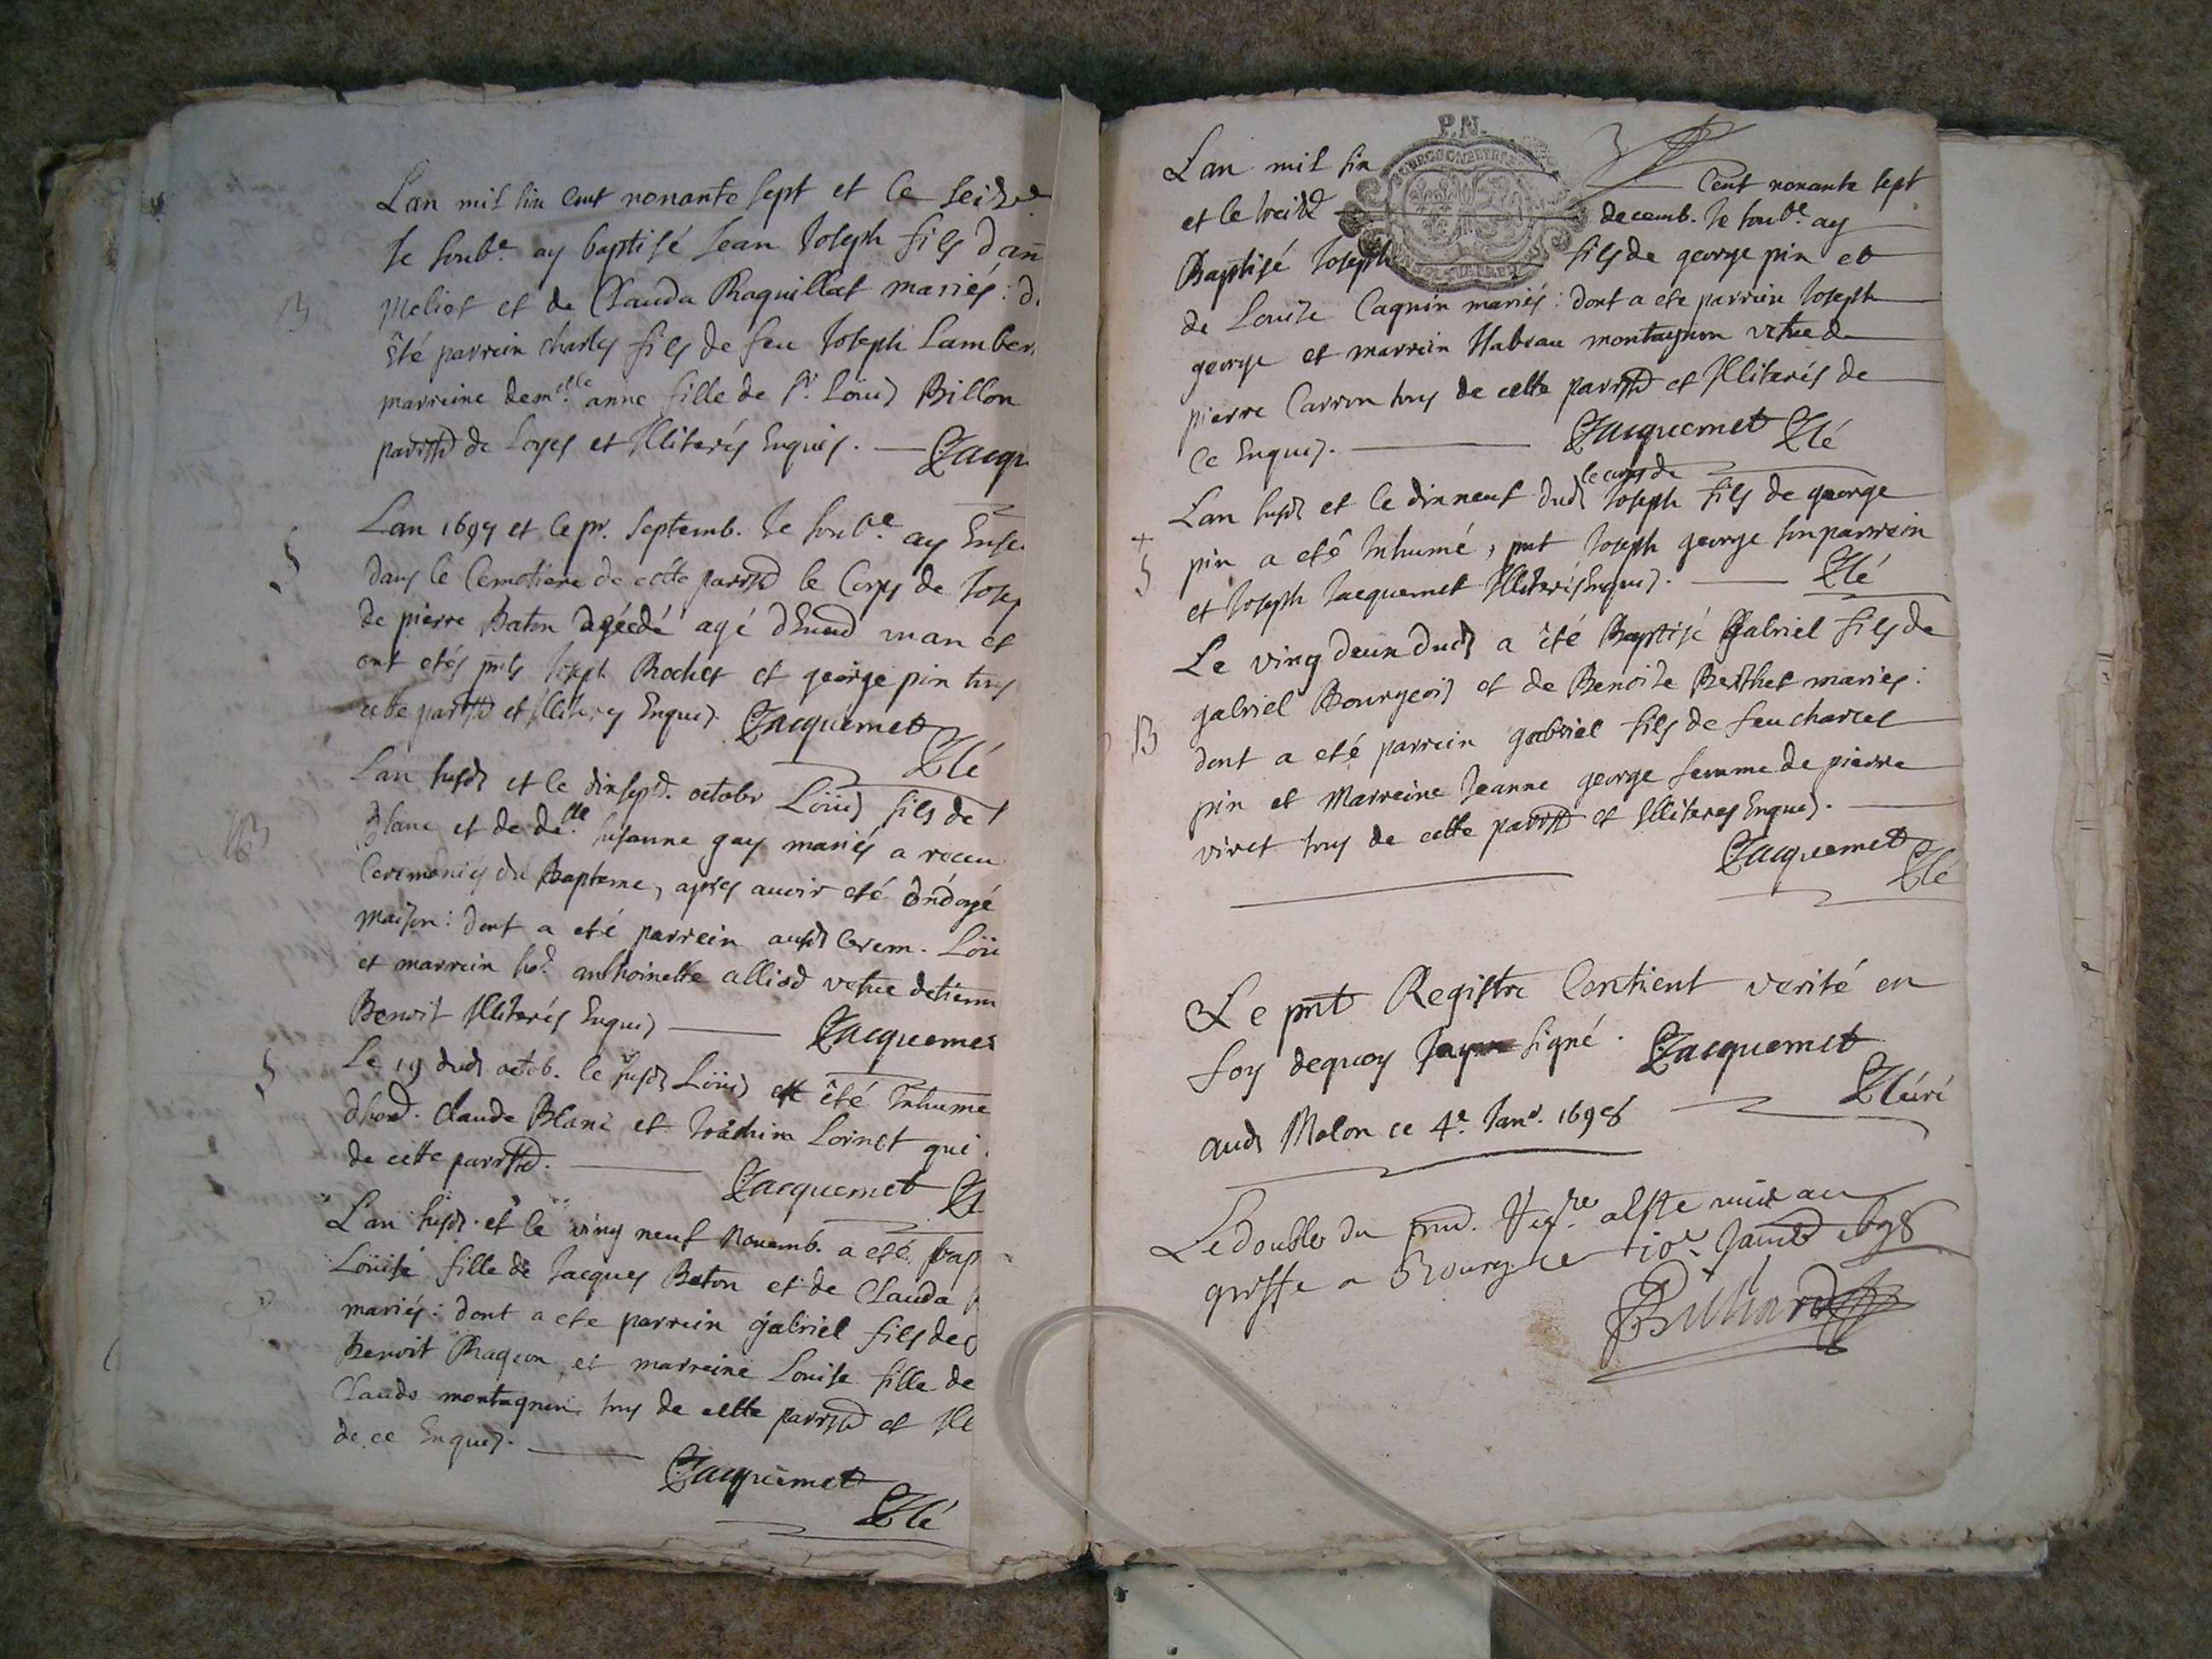 Lan mil six cent nonante sept et le seize
Je soubs.e ay baptisé Jean Joseph fils dan
Meliot et de Clauda Raquillat mariés : d
B
êté parrein charles fils de feu Joseph Lamber
marreine dem.elle anne fille de Sr. Loüis Billon
parrsse de Loyes et Illiterés Enquis. Jacqu
Lan 1697 et le pr. Septemb. Je soubs.e ay Ense
S
dans le Cemetiere de cette parrsse le Corps de Josep
de pierre Baton décédé agé denviron un an et
ont etés pnts Joseph Rochet et george pin tous
cette parrsse et Illiteres Enquis. Jacquemet
Clé
Lan susd et le dixsept. octobr Loüis fils de
Blanc et de de.lle susanne gay mariés a receu
B
Ceremonies du Bapteme, apres auoir eté ondoyé
maison : dont a eté parrein ausd Cerem. Loü
et marrein ho.e anthoinette alliod vefue detienn
Benoit Illiterés Enquis Jacquemet
S
Le 19 dud octob. le susd Loüis a êté Inhumé
Claude Blanc et Joachim Loinet qui
de cette parrsse. Jacquemet Cl
Lan susd. et le ving neuf Nouemb. a eté bap
Loüise fille de Jacques Baton et de Clauda
mariés : dont a ete parrein gabriel fils de
Benoit Raqeon et marreine Louise fille de
Claude montagnon tous de cette parrsse et Ille
de ce Enquis.
Jacquemet
Clé
P.N.
Lan mil six Cent nonante sept
et le treize decemb. Je soubs.e ay
Baptisé Joseph fils de george pin et
de Louise Cagnin mariés : dont a ete parrein Joseph
george et marrein Isabeau montagnon vefue de
pierre Carron tous de cette parrsse et Illiterés de
ce Enquis. Jacquemet Clé
le corps de
Lan susd et le dixneuf dud Joseph fils de george
+
S
pin a eté Inhumé, pnt Joseph george son parrein
et Joseph Jacquemet Illiterés Enquis. Clé
Le ving deux dud a êté Baptisé Gabriel fils de
gabriel Bourgeois et de Benoite Berthet mariés :
B
dont a eté parrein gabriel fils de feu charles
pin et Marreine Jeanne george femme de pierre
viret tous de cette parrsse et Illiteres Enquis.
Jacquemet
Clé
Le pnt Registre Contient verité en
foy dequoy Jay signé. Jacquemet
Cléiré
aud Molon ce 4.e Janv. 1698
Le double du pnd. Reg.re a este mis au
greffe a Bourg ce 10.e Janv 1698
Billiard